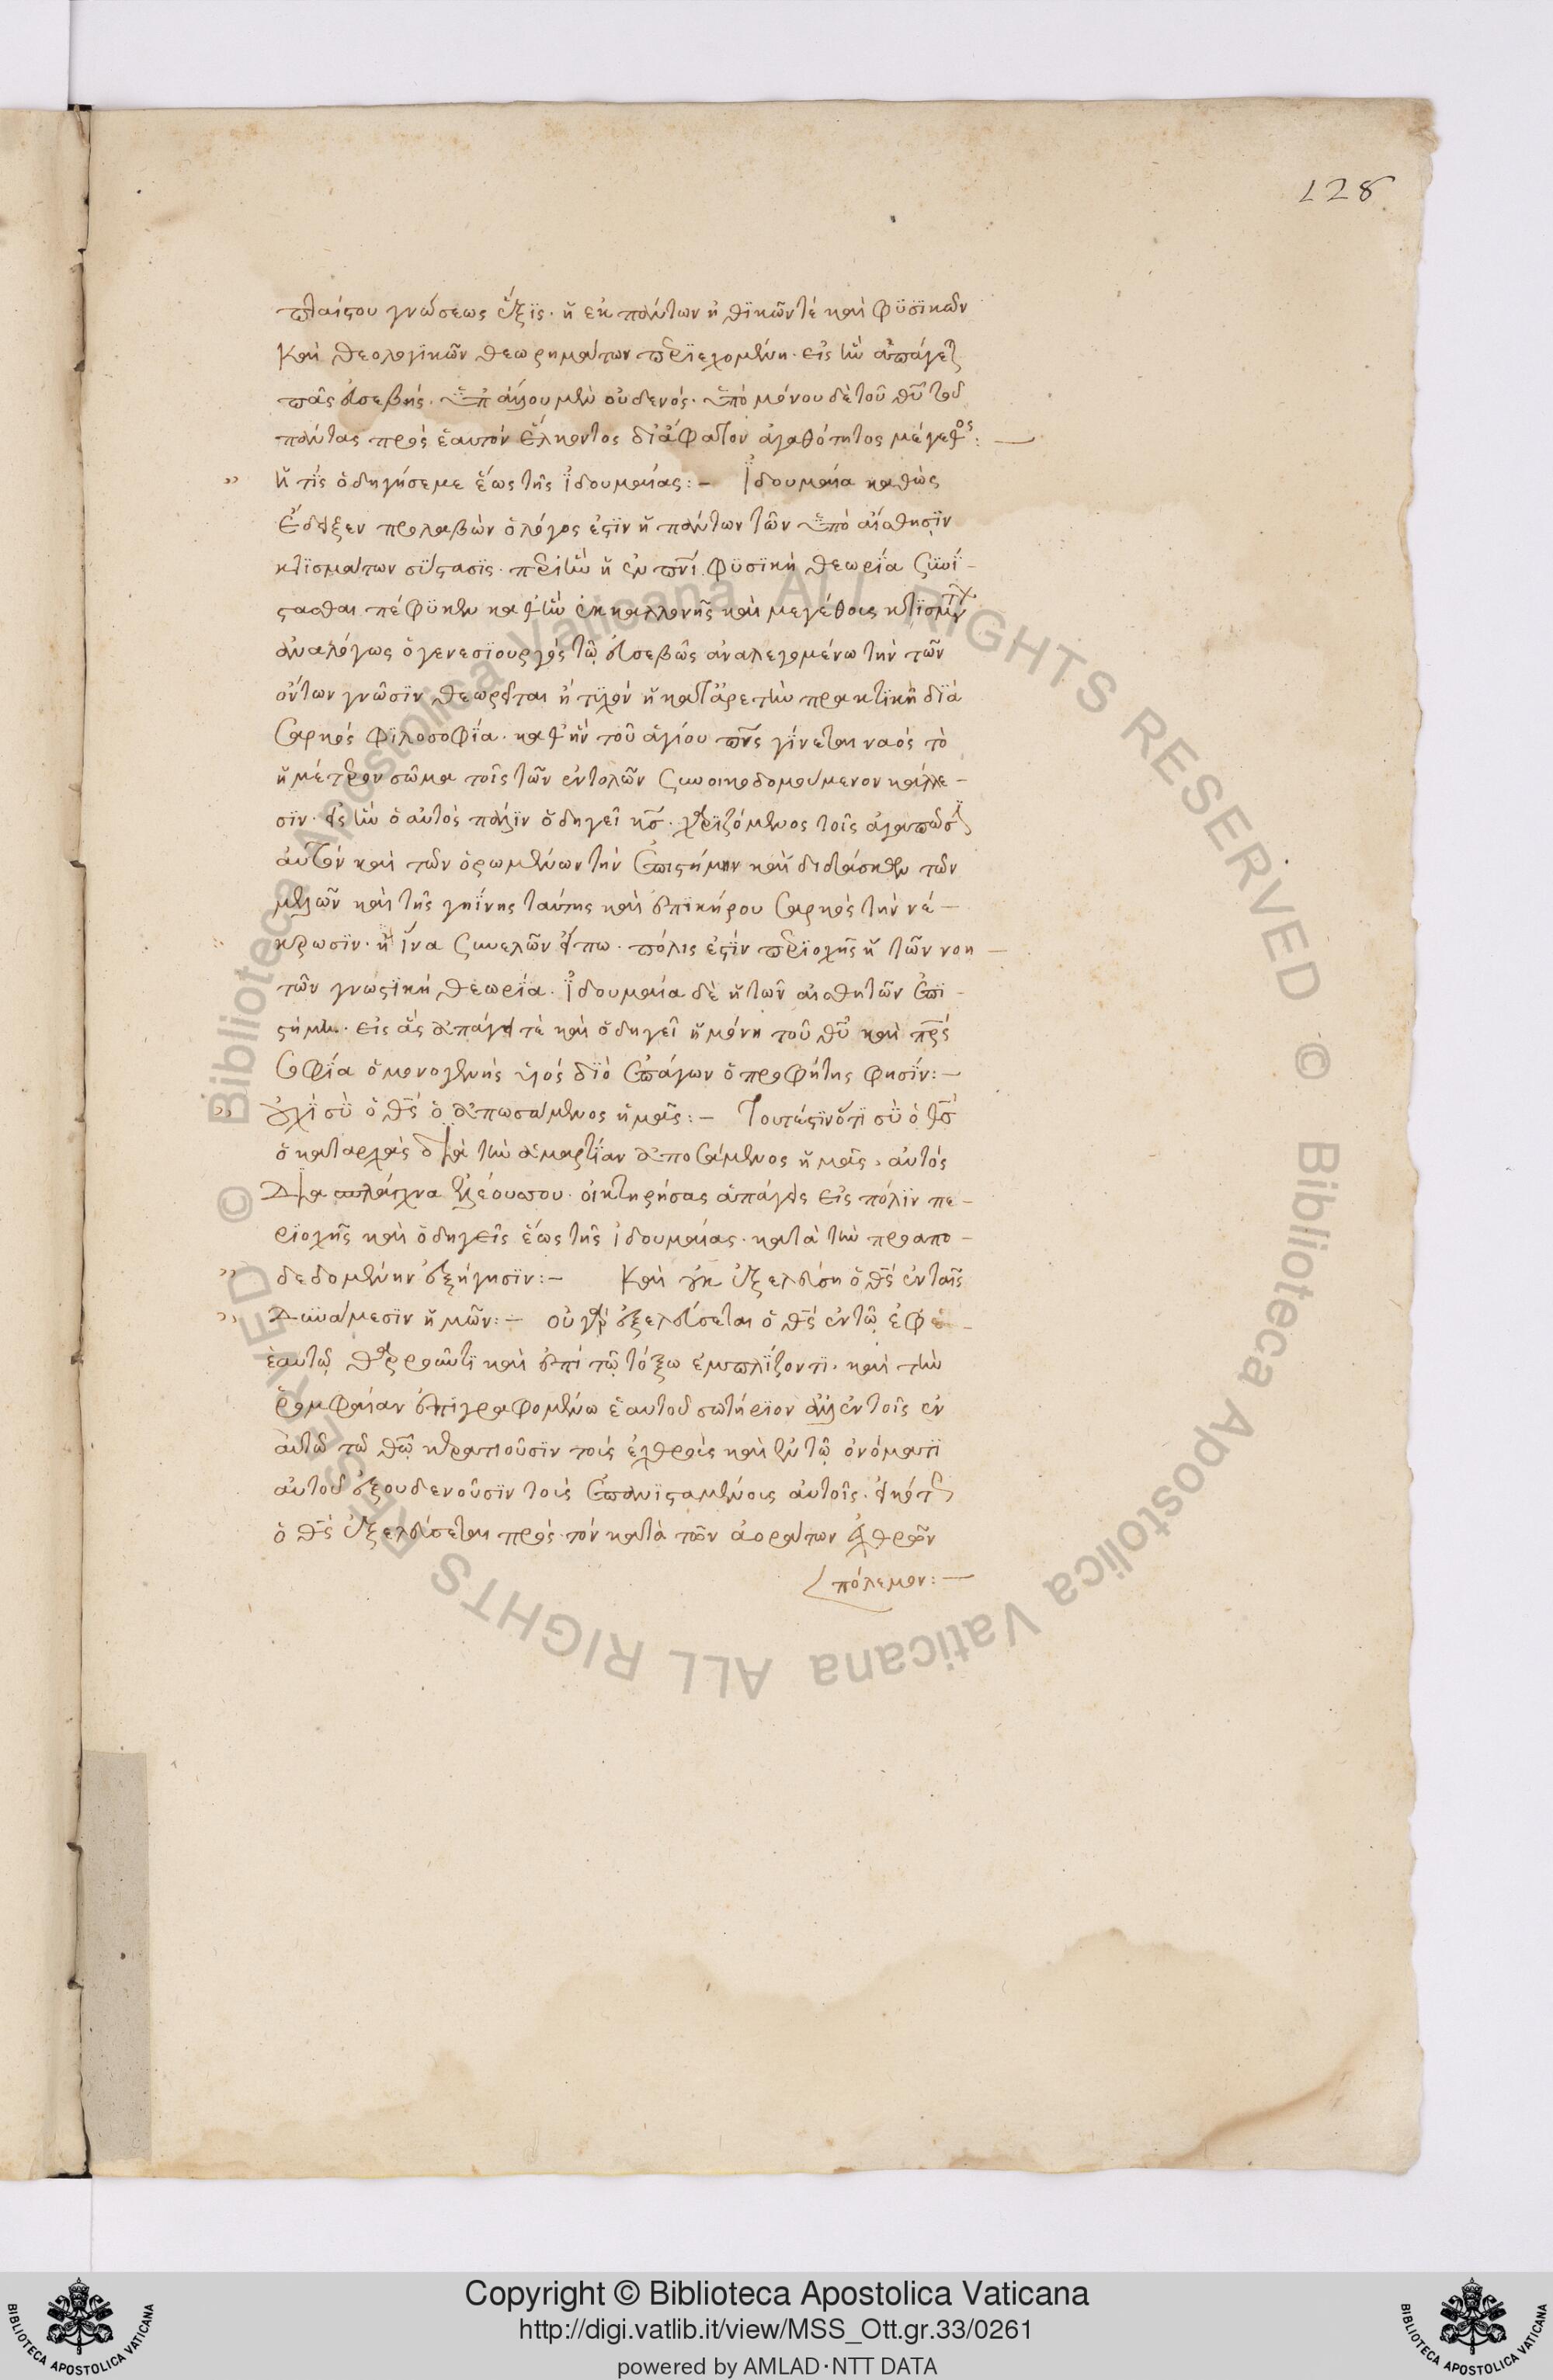 128
πταίστου γνώσεως ἕξϊς· ἢ ἐκ πάντων ἠθϊκῶντὲ καὶ φϋσϊκῶν
καὶ θεολογϊκῶν θεωρημάτων περϊεχομένη· εἰς ἣν ἀπάγετ
πᾶς εὐσεβὴς· ὑπ' ἄλλου μὲν οὐδενός· ὑπὸ μόνου δὲ τοῦ θυ τοῦ
πάντας πρὸς ἑαυτὸν ἕλκοντος διἄφατον ἀγαθότητος μέγεθος:—
" ἢ τίς ὁδηγήσεμε ἕως τῆς ἰδουμαίας:— Ἰδουμαία καθὼς
ἔδειξεν προλαβὼν ὁ λόγος ἐστϊν ἡ πάντων τῶν ὑπὸ αἴσθησϊν
κτϊσμάτων σύστασϊς· περὶ ἣν ἡ ἐν πνι φϋσϊκὴ θεωρΐα συνΐ-
στασθαι πέφϋκεν καθ' ἣν ἐκ καλλονῆς καὶ μεγέθους κτϊσμάτων
ἀναλόγως ὁ γενεσϊουργὸς τῷ εὐσεβῶς ἀναλεγομένω τὴν τῶν
ὄντων γνῶσϊν θεωρεῖται ἢ τϋχὸν ἡ κατ' ἀρετὴν πρακτϊκὴ δϊὰ
σαρκὸς φϊλοσοφΐα· καθ' ἣν τοῦ ἁγίου πνς γίνεται ναὸς τὸ
ἡμέτερον σῶμα τοῖς τῶν ἐντολῶν συνοικοδομούμενον κάλλε-
σϊν· εἰς ἣν ὁ αὐτὸς πάλϊν ὁδηγεῖ κς· χαρϊζόμενος τοῖς ἀγαπῶσϊ
αὐτὸν καὶ τῶν ὁρωμένων τὴν ἐπιστήμην καὶ διδάσκων τῶν
μελῶν καὶ τῆς γηΐνης ταύτης καὶ ἐπϊκήρου σαρκὸς τὴν νέ-
κρωσϊν· ἢ ἵνα συνελὼν εἴπω· πόλις ἐστϊν περϊοχῆς ἡ τῶν νοη-
τῶν γνωστϊκὴ θεωρΐα· Ἰδουμαία δὲ ἡ τῶν αἰσθητῶν ἐπϊ-
στήμη· εἰς ἃς ἀπάγει τὲ καὶ ὁδηγεῖ ἡ μόνη τοῦ θυ καὶ πρς
σοφΐα ὁ μονογενὴς υἱὸς δϊὸ ἐπάγων ὁ προφήτης φησΐν:—
" οὐχϊ σϋ ὁ θς ὁ ἀπωσάμενος ἡμᾶς:— Τουτέστϊν ὅτϊ σϋ ὁ θς
ὁ καταρχὰς διὰ τὴν ἁμαρτίαν ἀποσάμενος ἡμᾶς, αὐτὸς
Διὰ σπλάγχνα ἐλέουσσου· οἰκτηρήσας ἀπάγεις εἰς πόλϊν πε-
ρϊοχῆς καὶ ὁδηγεῖς ἕως τῆς ἰδουμαίας· κατὰ τὴν προαπο-
" δεδομένην ἐξήγησϊν:— Καὶ οὐκ ἐξελεύση ὁ θς ἐνταῖς
" Δϋνάμεσϊν ἡμῶν:— οὐ γὰρ ἐξελεύσεται ὁ θς ἐντῷ ἐφ' ἑ-
ἑαυτῷ θαρροῦντϊ καὶ ἐπὶ τῷ τόξω ἐμπλίζοντϊ· καὶ τὴν
ῥομφαίαν ἐπϊγραφομένω ἑαυτοῦ σωτήρϊον ἀλλ' ἐν τοῖς ἐν
αὐτῷ τῷ θῷ κερατιοῦσϊν τοὺς ἐχθροὺς καὶ ἐν τῷ ὀνόματϊ
αὐτοῦ ἐξουδενοῦσϊν τοὺς ἐπανϊσταμένους αὐτοῖς· εἰκότως
ὁ θς ἐξελεύσεται πρὸς τὸν κατὰ τῶν ἀοράτων ἐχθρῶν
πόλεμον:—
Copyright © Biblioteca Apostolica Vaticana
http://digi.vatlib.it/view/MSS_Ott.gr.33/0261
powered by AMLAD·NTT DATA
BIBLIOTECA APOSTOLICA VATICANA
BIBLIOTECA APOSTOLICA VATICANA
© Biblioteca Apostolica Vaticana ALL RIGHTS RESERVED © Biblioteca Apostolica Vaticana ALL RIGHTS RESERVED